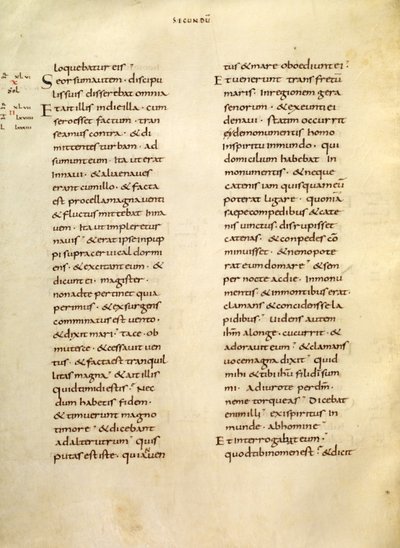 SECUNDŪ
loquebatur eis
Seorsum autem · discipu
lis suis disserebat omnia
Et ait illis in die illa · cum
sero esset factum · tran
seamus contra · & di
mittentes turbam · ad
sumunt eum · Ita ut erat
in navi · & aliae naves
erant cum illo · & facta
est procella magna venti
& fluctus mittebat in na
vem · Ita ut impleretur
navis & erat ipse in pup
pi supra cervical dormi
ens · & excitant eum · &
dicunt ei · magister ·
non ad te pertinet quia
perimus · & exsurgens
comminatus est vento ·
& dixit mari · tace · ob
mutesce · & cessavit ven
tus · & facta est tranquil
litas magna · & ait illis
quid timidi estis · Nec
dum habetis fidem ·
& timuerunt magno
timore · & dicebant
ad alterutrum · quis
putas est iste · quia & ven
tus & mare oboediunt ei ·
Et venerunt trans fretū
maris · In regionem gera
senorum · & exeunti ei
de navi · statim occurrit
ei de monumentis homo
in spiritu inmundo · qui
domicilium habebat In
monumentis · & neque
catenis iam quisquam eū
poterat ligare · quoniā
saepe compedibus & cate
nis vinctus · disrupisset
catenas · & conpedes cō
minuisset · & nemo pote
rat eum domare · & sem
per nocte ac die · In monu
mentis · & in montibus erat ·
clamans & concidens se la
pidibus · Videns autem
ihm̄ a longe · cucurrit · &
adoravit eum · & clamans
voce magna dixit · quid
mihi & tibi ihū fili dī sum
mi · Adiuro te per dm̄ ·
ne me torqueas · Dicebat
enim illi · exi spiritus In
munde · ab homine ·
Et interrogabat eum ·
quod tibi nomen est · & dicit